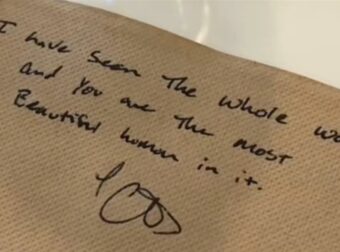 I have seen The whole wo
and You are The most
Beautiful human in it.